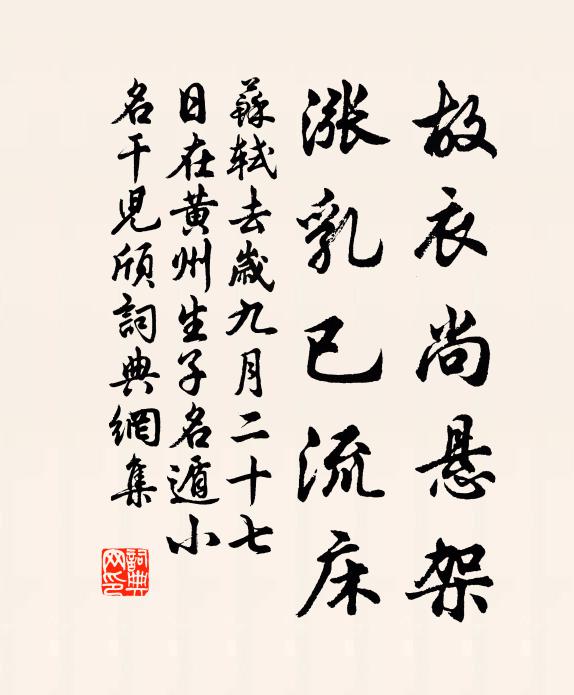 故衣尚悬架
涨乳已流床
蘇軾去歲九月二十七
日在黄州生子名遁小
名干児頎詞典網集
詞典网印